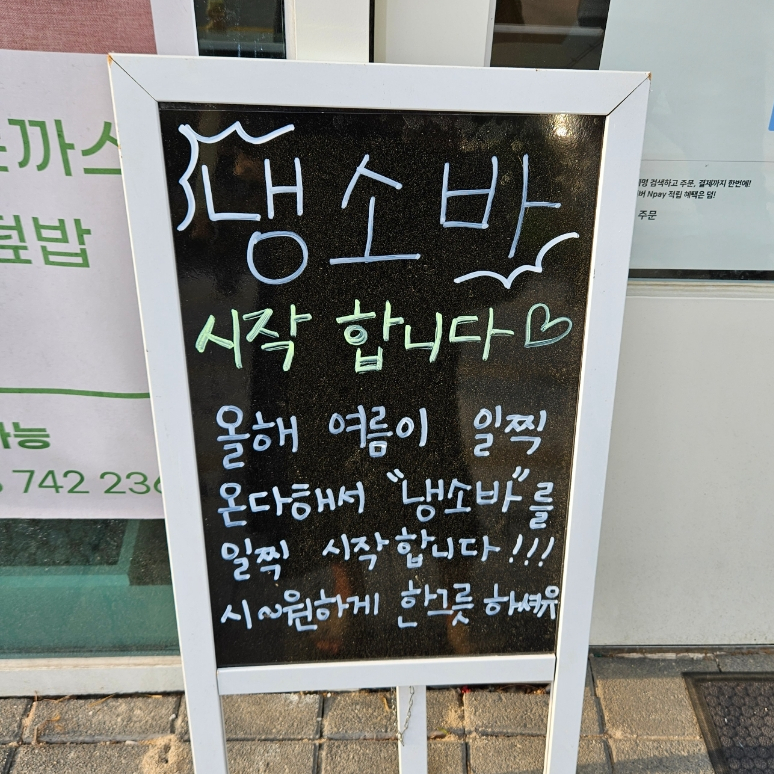 냉소바
시작 합니다♡
올해 여름이 일찍
온다해서 "냉소바"를
일찍 시작합니다!!!
시~원하게 한그릇 하셔유
덮밥
가능
742 236
검색하고 주문, 결제까지 한번에!
Npay 적립 혜택은 덤!
주문